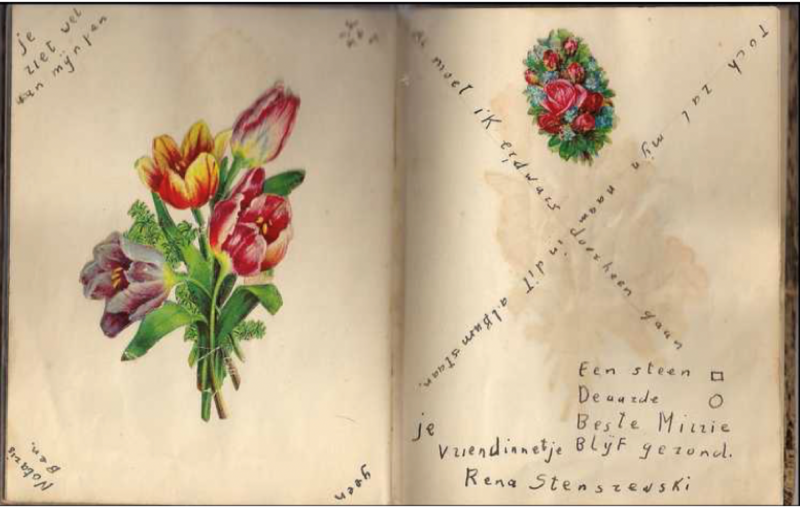 je
ziet wel
aan mijn pen
geen
Notaris
Ben.
Al moet ik eidwars doorheen gaan
Toch zal mijn naam in dit album staan.
Een steen
De aarde
Beste Mizzie
Blijf gezond.
je
vriendinnetje
Rena Stenszewski